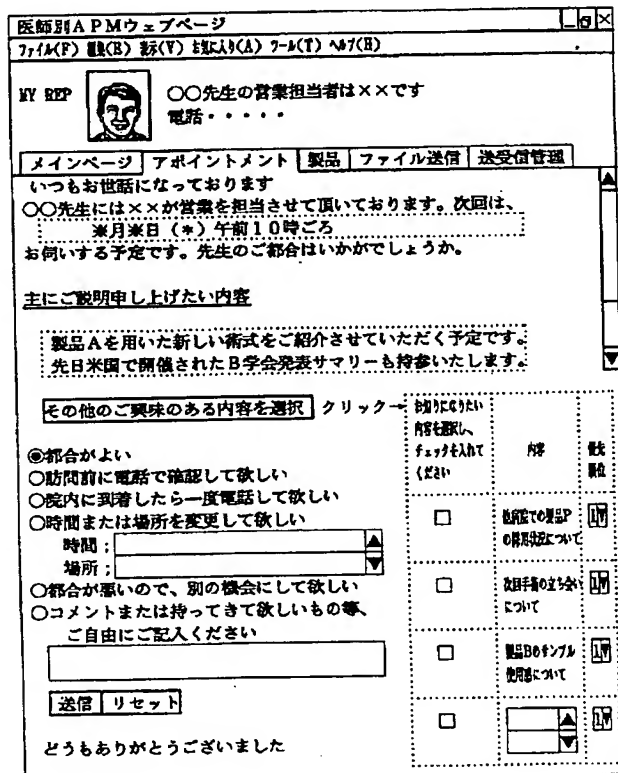 医師別APMウェブページ
ファイル(F) 編集(E) 表示(V) お気に入り(A) ツール(T) ヘルプ(H)
MY REP
○○先生の営業担当者は××です
電話・・・・・
メインページ アポイントメント 製品 ファイル送信 送受信管理
いつもお世話になっております
○○先生には××が営業を担当させて頂いております。次回は、
※月※日(*)午前10時ごろ
お伺いする予定です。先生のご都合はいかがでしょうか。
主にご説明申し上げたい内容
製品Aを用いた新しい術式をご紹介させていただく予定です。
先日米国で開催されたB学会発表サマリーも持参いたします。
その他のご興味のある内容を選択 クリック→
◉都合がよい
○訪問前に電話で確認して欲しい
○院内に到着したら一度電話して欲しい
○時間または場所を変更して欲しい
時間;
場所;
○都合が悪いので、別の機会にして欲しい
○コメントまたは持ってきて欲しいもの等、
ご自由にご記入ください
送信 リセット
どうもありがとうございました
お知りになりたい
内容を選択し、
チェックを入れて
ください
内容
優先
順位
他病院での製品P
の採用状況について
1
次回手術の立ち会い
について
1
製品Bのサンプル
使用感について
1
1